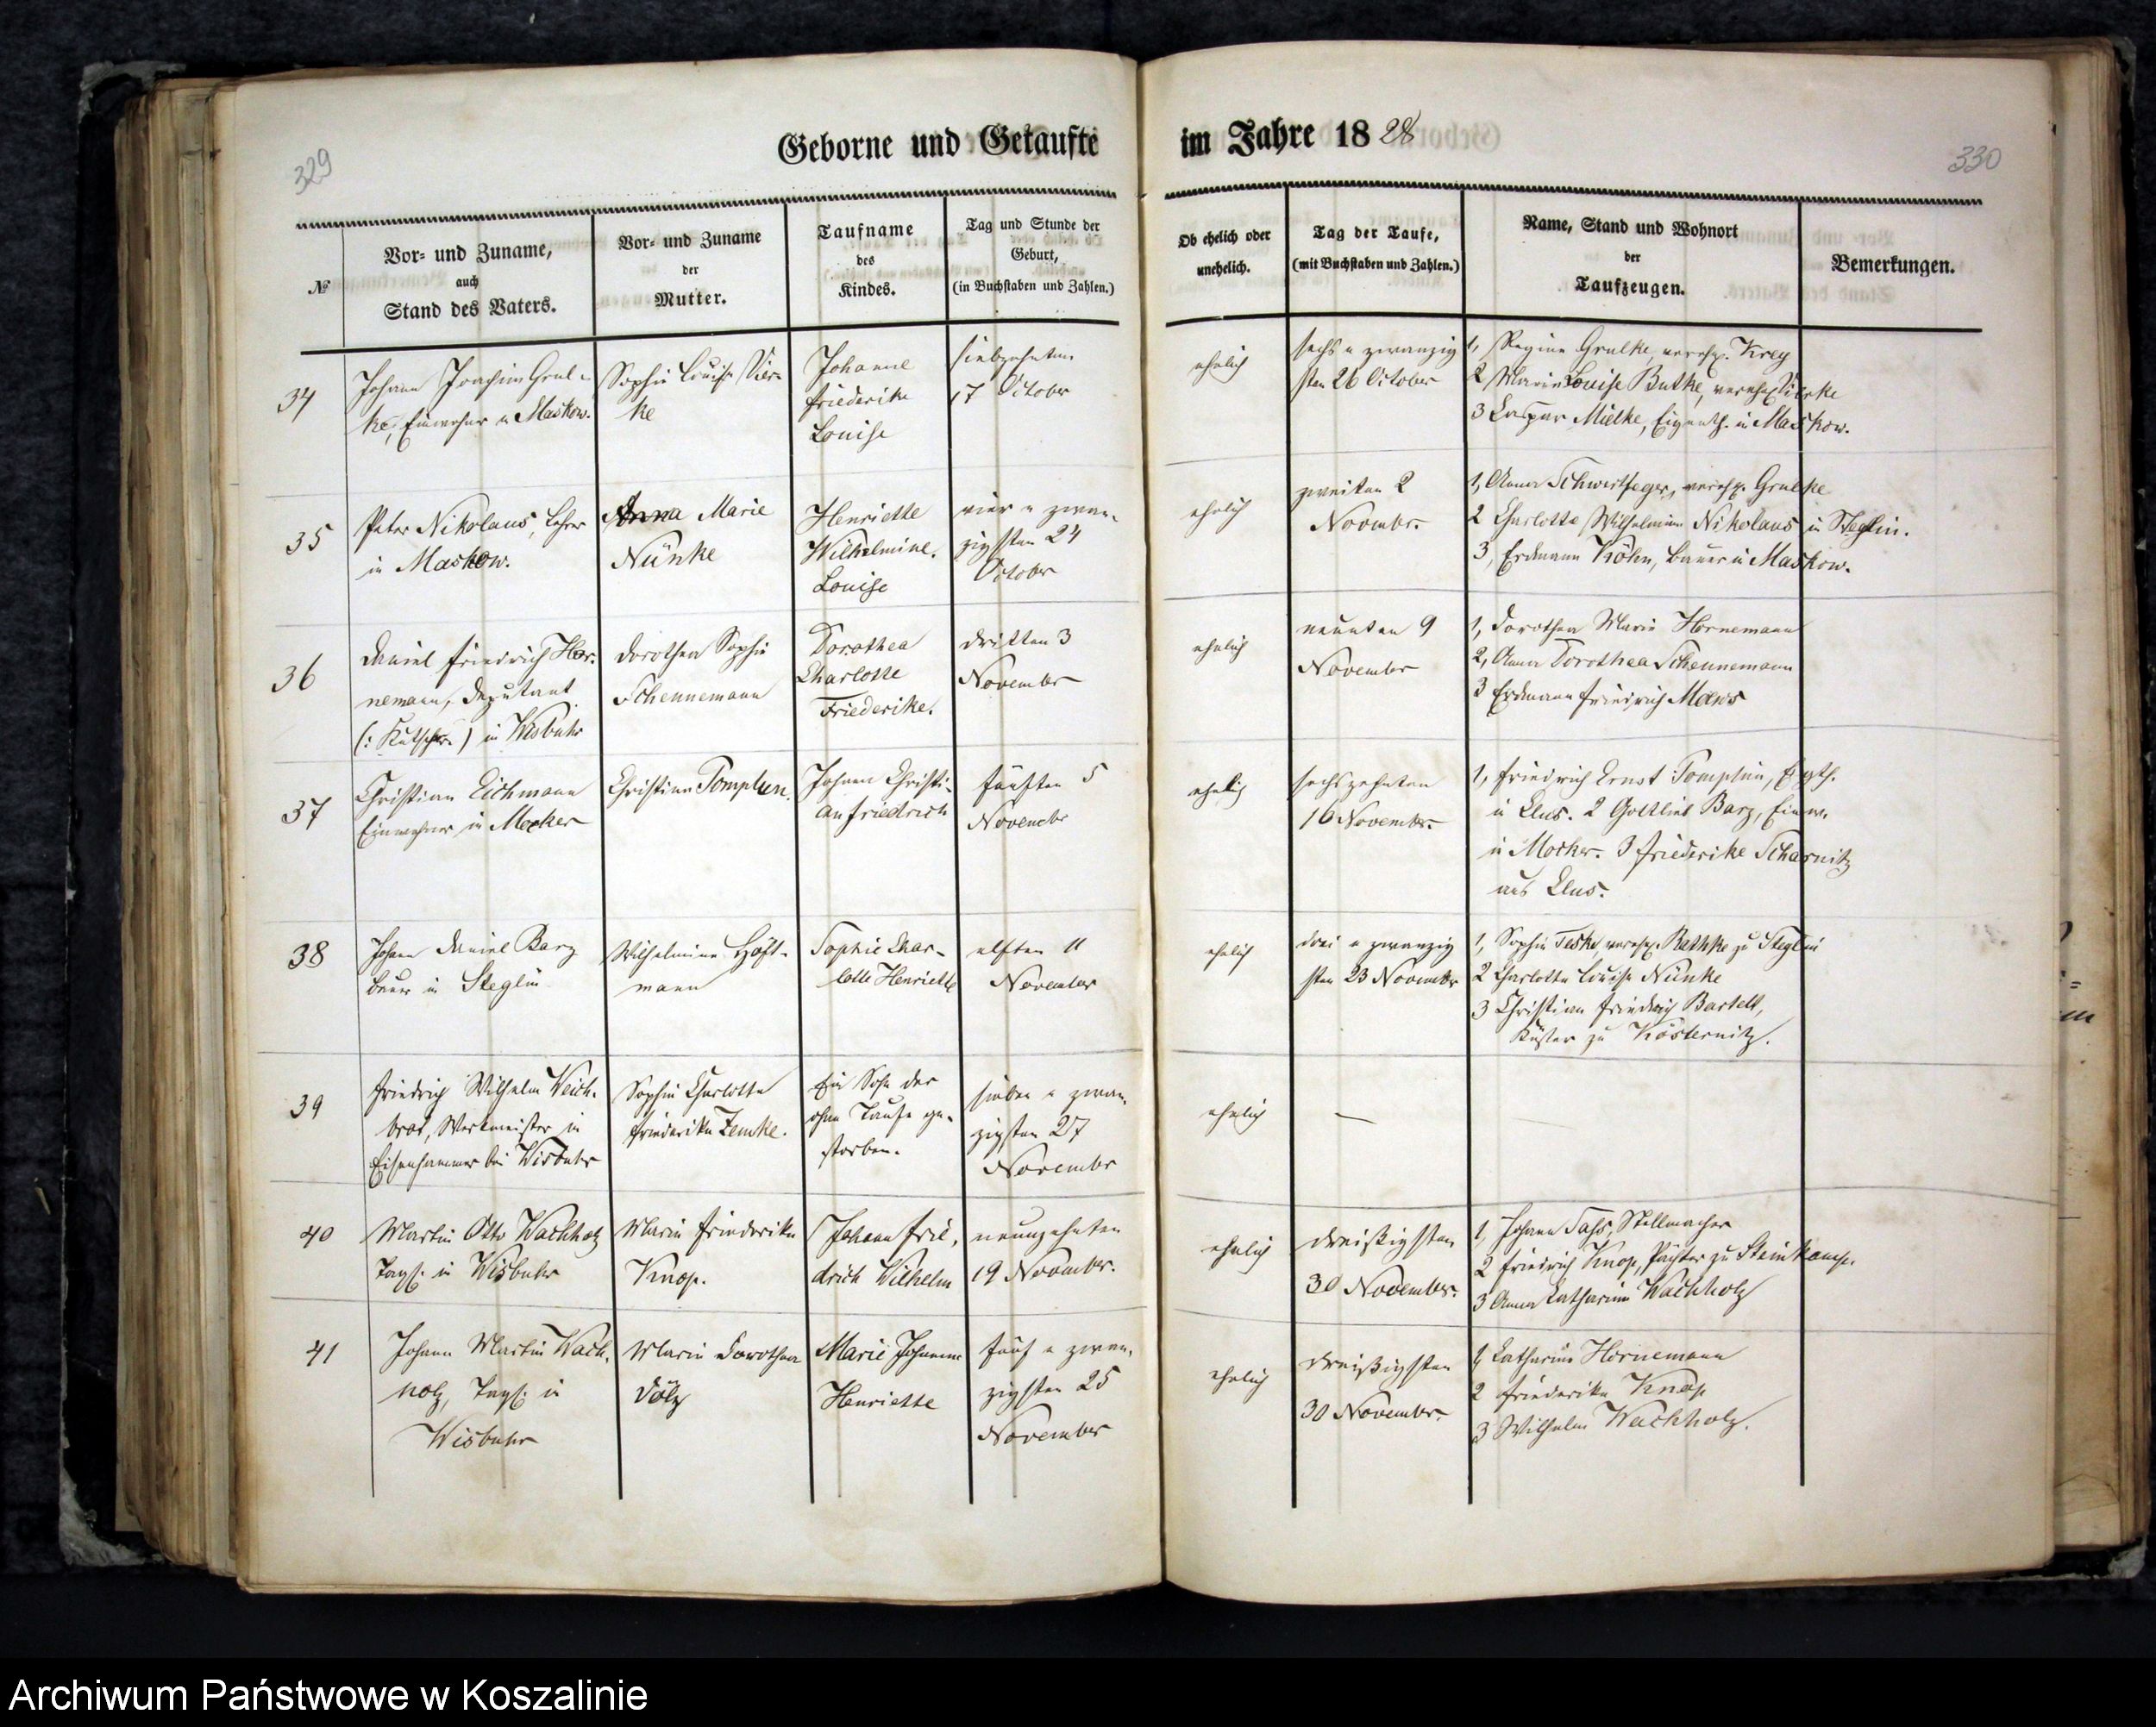 329
Geborne und Getaufte
im Jahre 1828
330
№
Vor- und Zuname,
auch
Stand des Vaters.
Vor- und Zuname
der
Mutter.
Taufname
des
Kindes.
Tag und Stunde der
Geburt,
(in Buchstaben und Zahlen.)
Ob ehelich oder
unehelich.
Tag der Taufe,
(mit Buchstaben und Zahlen.)
Name, Stand und Wohnort
der
Taufzeugen.
Bemerkungen.
34
Johann Joachim Grul-
ke, Einwohner in Maskow.
Sophie Louise Vier-
ke
Johanne
Friederike
Louise
siebzehnten
17 October
ehelich
sechs u zwanzig
sten 26 October
1, Regine Grulke, verehl. Krey
2 Marie Louise Butke, verehl. Vierke
3 Caspar Mielke, Eigenth. in Maskow.
35
Peter Nikolaus, Lehrer
in Maskow.
Anna Marie
Nünke
Henriette
Wilhelmine.
Louise
vier u zwan-
zigsten 24
October
ehelich
zweiten 2
Novembr.
1, Anna Schwertfeger, verehl. Grulke
2 Charlotte Wilhelmine Nikolaus in Steglin.
3, Erdmann Köhn, Bauer in Maskow.
36
Daniel Friedrich Hor-
nemann, Deputant
(: Kutscher) in Wisbuhr
Dorothea Sophie
Schennemann
Dorothea
Charlotte
Friederike.
dritten 3
November
ehelich
neunten 9
November
1, Dorothea Marie Hornemann
2, Anna Dorothea Schennemann
3 Erdmann Friedrich Maws
37
Christian Eichmann
Einwohner in Mocker
Christine Tomplun.
Johann Christi-
an Friedrich
fünften 5
Novembr
ehelich
sechszehnten
16 Novembr.
1, Friedrich Ernst Tomplun, Egth.
in Clus. 2 Gottlieb Barz, Einw.
in Mocker. 3 Friederike Scharnitz
aus Clus.
38
Johann Daniel Barz
Bauer in Steglin
Wilhelmine Höft-
mann
Sophie Char-
lotte Henriette
elften 11
November
ehelich
drei u zwanzig
sten 23 Novembr
1, Sophie Teske, verehl. Rathke zu Steglin
2 Charlotte Louise Nünke
3 Christian Friedrich Bartelt,
Küster zu Kösternitz.
39
Friedrich Wilhelm Weich-
brot, Werkmeister in
Eisenhammer bei Wisbuhr
Sophie Charlotte
Friederike Zemke.
Ein Sohn der
ohne Taufe ge-
storben.
sieben u zwan-
zigsten 27
Novembr
ehelich
—
40
Martin Otto Wachholz
Tagl. in Wisbuhr
Marie Friederike
Knop.
Johann Frie-
drich Wilhelm
neunzehnten
19 November.
ehelich
dreißigsten
30 November.
1, Johann Sass, Stellmacher
2 Friedrich Knop, Pächter zu Steinkamp.
3 Anna Catharine Wachholz
41
Johann Martin Wach-
holz, Tagl. in
Wisbuhr
Marie Dorothea
Völz
Marie Johanne
Henriette
fünf u zwan-
zigsten 25
November
ehelich
dreißigsten
30 November.
1, Catharine Hornemann
2 Friederike Knop
3 Wilhelm Wachholz.
Archiwum Państwowe w Koszalinie